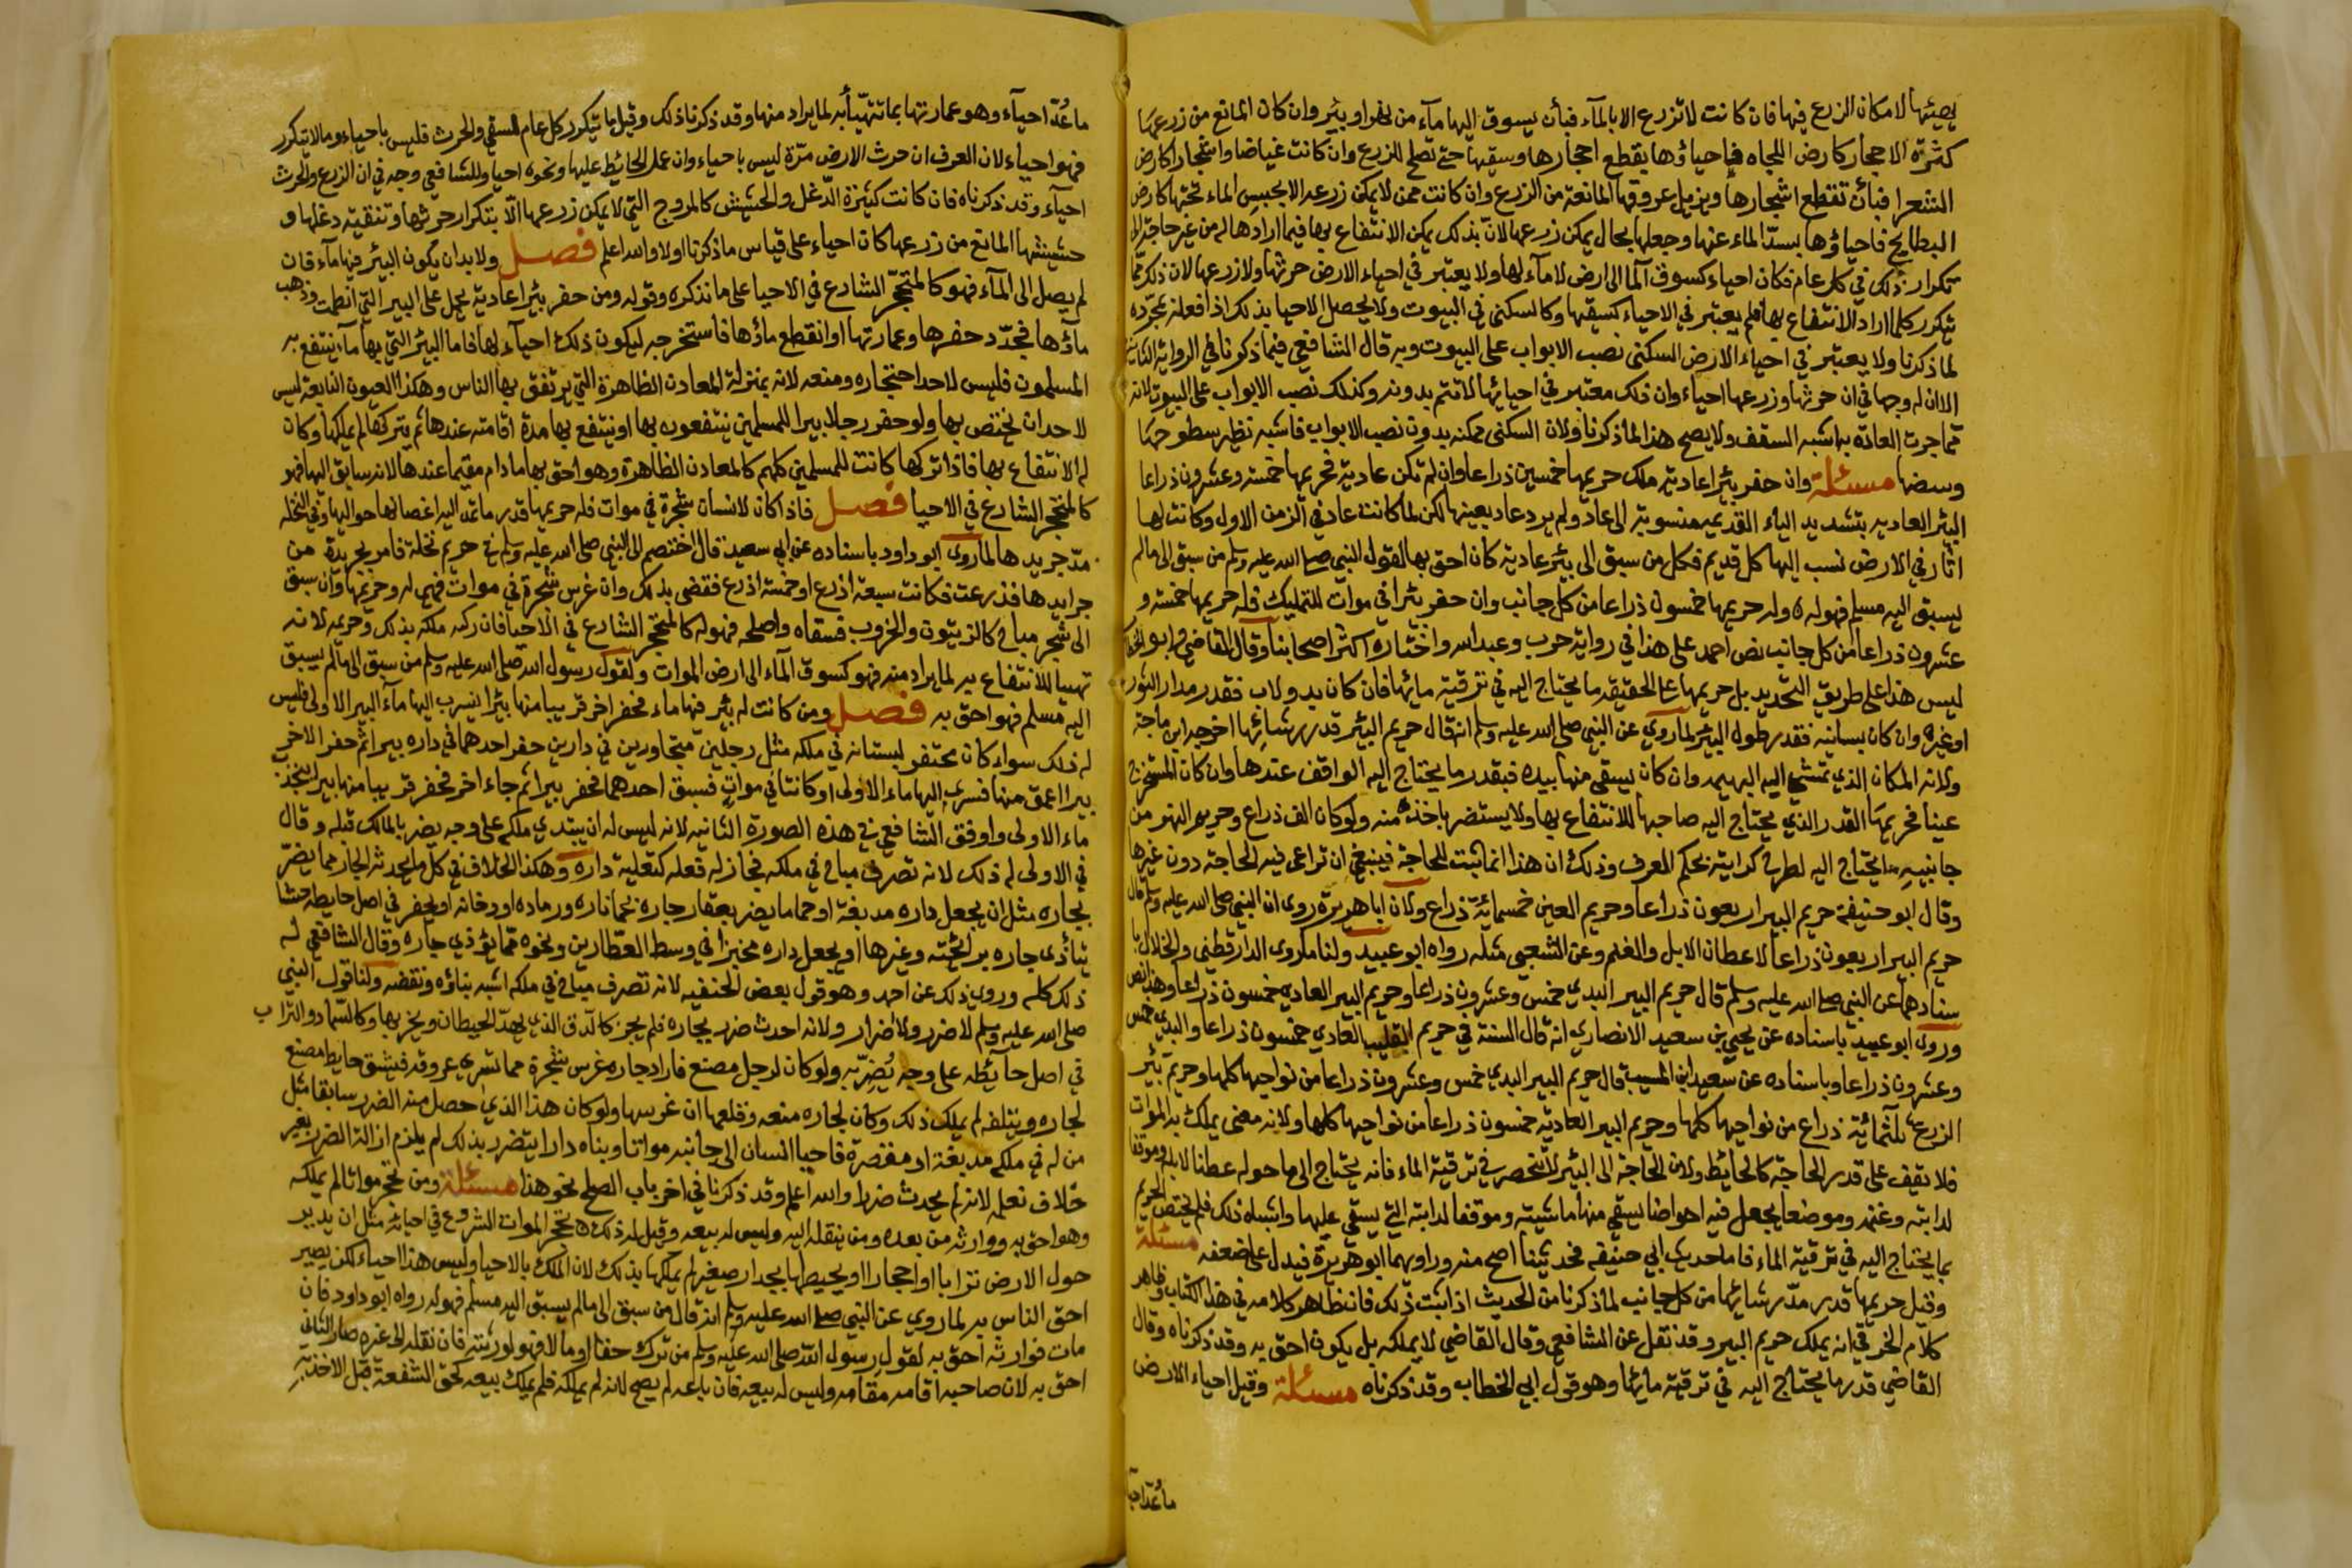 يصيبها لامكان الزرع فيها فان كانت لا تزرع الا بالمآء فبأن يسوق اليها مآء من نهر او بئر وان كان المانع من زرعها
كثرة الاحجار كارض اللجاه فاحياؤها بقطع احجارها وسقيها حتى تصلح للزرع وان كانت غياضا واشجارا كارض
الشعرا فبأن تقطع اشجارها ويزيل عروقها المانعة من الزرع وان كانت ممن لا يمكن زرعه الا بحبس الماء عنها كارض
البطايح فاحياؤها بسد الماء عنها وجعلها بحال يمكن زرعها لان بذلك يمكن الانتفاع بها فيما ارادها له من غير حاجة الى
تكرار ذلك في كل عام فكان احياء كسوق المآ الى ارض لا مآء لها ولا يعتبر في احياء الارض حرثها ولا زرعها لان ذلك مما
يتكرر كلما اراد الانتفاع بها فلم يعتبر في الاحياء كسقيها وكالسكنى في البيوت ولا يحصل الاحيا بذلك اذا فعله بمجرده
لما ذكرنا ولا يعتبر في احياء الارض السكنى نصب الابواب على البيوت وبه قال الشافعي فيما ذكرنا في الرواية الثانية
الا ان له وجها في ان حرثها وزرعها احياء وان ذلك معتبر في احيائها لا تتم بدونه وكذلك نصب الابواب على البيوت لانه
مما جرت العادة به اشبه السقف ولا يصح هذا لما ذكرنا ولان السكنى ممكنه بدون نصب الابواب فاشبه تطهير سطوحها
وبيضها مسئلة وان حفر بئرا عادية ملك حريمها خمسين ذراعا وان لم تكن عادية فحريمها خمسة وعشرون ذراعا
البئر العاديه بتشديد الياء القديمه منسوبة الى عاد ولم يرد عاد بعينها لكن لما كانت عاد في الزمن الاول وكانت لها
اثار في الارض نسب اليها كل قديم فكل من سبق الى بئر عادية كان احق بها لقول النبي صلى الله عليه وسلم من سبق الى مالم
يسبق اليه مسلم فهو له ه وله حريمها خمسون ذراعا من كل جانب وان حفر بئرا في موات للتمليك فله حريمها خمسة و
عشرون ذراعا من كل جانب نص احمد على هذا في رواية حرب وعبدالله واختاره اكثر اصحابنا وقال القاضي وابو الخطاب
ليس هذا على طريق التحديد بل حريمها على الحقيقه ما يحتاج اليه في ترقية مائها فان كان بدولاب فقدر مدار الثور
او غيره وان كان بسانيه فقدر طول البئر لما روي عن النبي صلى الله عليه وسلم انه قال حريم البئر قدر رشائها اخرجه ابن ماجة
ولانه المكان الذي تمشي اليه البهيمه وان كان يسقي منها بيده فبقدر ما يحتاج اليه الواقف عندها وان كان المستخرج
عينا فحريمها القدر الذي يحتاج اليه صاحبها للانتفاع بها ولا يستضر باخذه منه ولو كان الف ذراع وحريم النهر من
جانبيه ما يحتاج اليه لطرح كرايته بحكم العرف وذلك ان هذا انما ثبت للحاجة فينبغي ان تراعى فيه الحاجة دون غيرها
وقال ابو حنيفة حريم البير اربعون ذراعا وحريم العين خمسمائة ذراع ولان ابا هريرة روى ان النبي صلى الله عليه وسلم قال
حريم البير اربعون ذراعا لاعطان الابل والغنم وعن الشعبي مثله رواه ابو عبيد ولنا ما روى الدارقطني والخلال با
سنادهما عن النبي صلى الله عليه وسلم قال حريم البير البدي خمس وعشرون ذراعا وحريم البير العادي خمسون ذراعا وهذا نص
وروى ابو عبيد باسناده عن يحيى بن سعيد الانصاري انه قال السنة في حريم القليب العادي خمسون ذراعا والبدي خمس
وعشرون ذراعا وباسناده عن سعيد ابن المسيب قال حريم البير البدي خمس وعشرون ذراعا من نواحيها كلها وحريم بئر
الزرع ثلثمائة ذراع من نواحيها كلها وحريم البير العاديه خمسون ذراعا من نواحيها كلها ولانه معنى يملك به الموات
فلا يقف على قدر الحاجة كالحائط ولان الحاجة الى البئر لا تنحصر في ترقية الماء فانه يحتاج الى ما حوله عطنا لابله وموقفا
لدابته وغنمه وموضعا يجعل فيه احواضا يسقي منها ماشيته وموقفا لدابته التي يستقي عليها واشباه ذلك فلم يختص الحريم
بما يحتاج اليه في ترقية الماء فاما حديث ابي حنيفه فحديثنا اصح منه وراويهما ابو هريرة فيدل على ضعفه مسئلة
وقيل حريمها قدر مد رشائها من كل جانب لما ذكرنا من الحديث اذا ثبت ذلك فان ظاهر كلامه في هذا الكتاب وظاهر
كلام الخرقي انه يملك حريم البير وقد نقل عن الشافعي وقال القاضي لا يملكه بل يكون احق به وقد ذكرناه وقال
القاضي قدر ما يحتاج اليه في ترقية مائها وهو قول ابي الخطاب وقد ذكرناه مسئلة وقيل احياء الارض
ما عد احيآ
ما عد احيآء وهو عمارتها بما تتهيأ به لما يراد منها وقد ذكرنا ذلك وقيل ما يتكرر كل عام السقي والحرث فليس باحياء وما لا يتكرر
فهو احياء لان العرف ان حرث الارض مرة ليس باحياء وان عمل الحائط عليها ونحوه احيا وللشافعي وجه في ان الزرع والحرث
احيآء وقد ذكرناه فان كانت كثيرة الدغل والحشيش كالمروج التي لا يمكن زرعها الا بتكرار حرثها وتنقيه دغلها و
حشيشها المانع من زرعها كان احياء على قياس ما ذكرنا اولا والله اعلم فصل ولا بد ان يكون البئر فيها مآء فان
لم يصل الى المآء فهو كالمتحجر الشارع في الاحيا على ما نذكره وقوله ومن حفر بئرا عادية يحمل على البير التي انطمت وذهب
مآؤها فجدد حفرها وعمارتها او انقطع ماؤها فاستخرجه ليكون ذلك احيآء لها فاما البئر التي بها مآء ينتفع به
المسلمون فليس لاحد احتجاره ومنعه لانه بمنزلة المعادن الظاهرة التي يرتفق بها الناس وهكذا العيون النابعة ليس
لاحد ان يختص بها ولو حفر رجل بيرا للمسلمين ينتفعون بها او ينتفع بها مدة اقامته عندها ثم يتركها لم يملكها وكان
له الانتفاع بها فاذا تركها كانت للمسلمين كلهم كالمعادن الظاهرة وهو احق بها ما دام مقيما عندها لانه سابق اليها فهو
كالمتحجر الشارع في الاحيا فصل فاذا كان لانسان شجرة في موات فله حريمها قدر ما تمد اليه اغصانها حواليها وفي النخله
مد جريدها لما روى ابو داود باسناده عن ابي سعيد قال اختصم الى النبي صلى الله عليه وسلم في حريم نخلة فامر بجريدة من
جرايدها فذرعت فكانت سبعة اذرع او خمسة اذرع فقضى بذلك وان غرس شجرة في موات فهي له وحريمها وان سبق
الى شجر مباح كالزيتون والخروب فسقاه واصلحه فهو له كالمتحجر الشارع في الاحيا فان ركبه ملكه بذلك وحريمه لانه
تهيبا للانتفاع به لما يراد منه فهو كسوق المآء الى ارض الموات ولقول رسول الله صلى الله عليه وسلم من سبق الى مالم يسبق
اليه مسلم فهو احق به فصل ومن كانت له بئر فيها ماء فحفر اخر قريبا منها بئرا ينسرب اليها مآء البير الاولى فليس
له ذلك سواء كان محتفر لبستانه في ملكه مثل رجلين متجاورين في دارين حفر احدهما في داره بيرا ثم حفر الاخر
بيرا اعمق منها فسرى اليها ماء الاولى او كانتا في موات فسبق احدهما فحفر بيرا ثم جاء اخر فحفر قريبا منها بيرا يجذب
ماء الاولى ووافق الشافعي في هذه الصورة الثانيه لانه ليس له ان يبتدي ملكه على وجه يضر بالمالك قبله وقال
في الاولى له ذلك لانه تصرف مباح في ملكه فجاز له فعله كتعلية داره وهكذا الخلاف في كل ما يحدثه الجار مما يضر
بجاره مثل ان يجعل داره مدبغة او حماما يضر بعقار جاره بحما ناره ورماده او دخانه او يحفر في اصل حايطه حشا
يتأذى جاره برائحته وغيرها او يجعل داره مخبزا في وسط العطارين ونحوه مما يؤذي جاره وقال الشافعي له
ذلك كله وروي ذلك عن احمد وهو قول بعض الحنفيه لانه تصرف مباح في ملكه اشبه بناؤه ونقضه ولنا قول النبي
صلى الله عليه وسلم لا ضرر ولا اضرار ولانه احدث ضرر بجاره فلم يجز كالدق الذي يهد الحيطان ويخربها وكالسماد والتراب
في اصل حآئطه على وجه يضر به ولو كان لرجل مصنع فاراد جاره غرس شجرة مما تسري عروقه فيشق حايط مصنع
لجاره ويتلفه لم يملك ذلك وكان لجاره منعه وقلعها ان غرسها ولو كان هذا الذي حصل منه الضرر سابقا مثل
من له في ملكه مدبغة او مقصرة فاحيا انسان الى جانبه مواتا وبناه دارا يتضرر بذلك لم يلزم ازالة الضرر بغير
خلاف نعلمه لانه لم يحدث ضررا والله اعلم وقد ذكرنا في اخر باب الصلح نحو هذا مسئلة ومن تحجر مواتا لم يملكه
وهو احق به ووارثه من بعده ومن ينقله اليه وليس له بيعه وقيل له ذلك ه تحجر الموات الشروع في احيائه مثل ان يدير
حول الارض ترابا او احجارا او يحيطها بجدار صغير لم يملكها بذلك لان الملك بالاحيا وليس هذا احياء لكن يصير
احق الناس به لما روي عن النبي صلى الله عليه وسلم انه قال من سبق الى مالم يسبق اليه مسلم فهو له رواه ابو داود فان
مات فوارثه احق به لقول رسول الله صلى الله عليه وسلم من ترك حقا او مالا فهو لورثته فان نقله الى غيره صار الثاني
احق به لان صاحبه اقامه مقامه وليس له بيعه فان باعه لم يصح لانه لم يملكه فلم يملك بيعه كحق الشفعة قبل الاخذ به